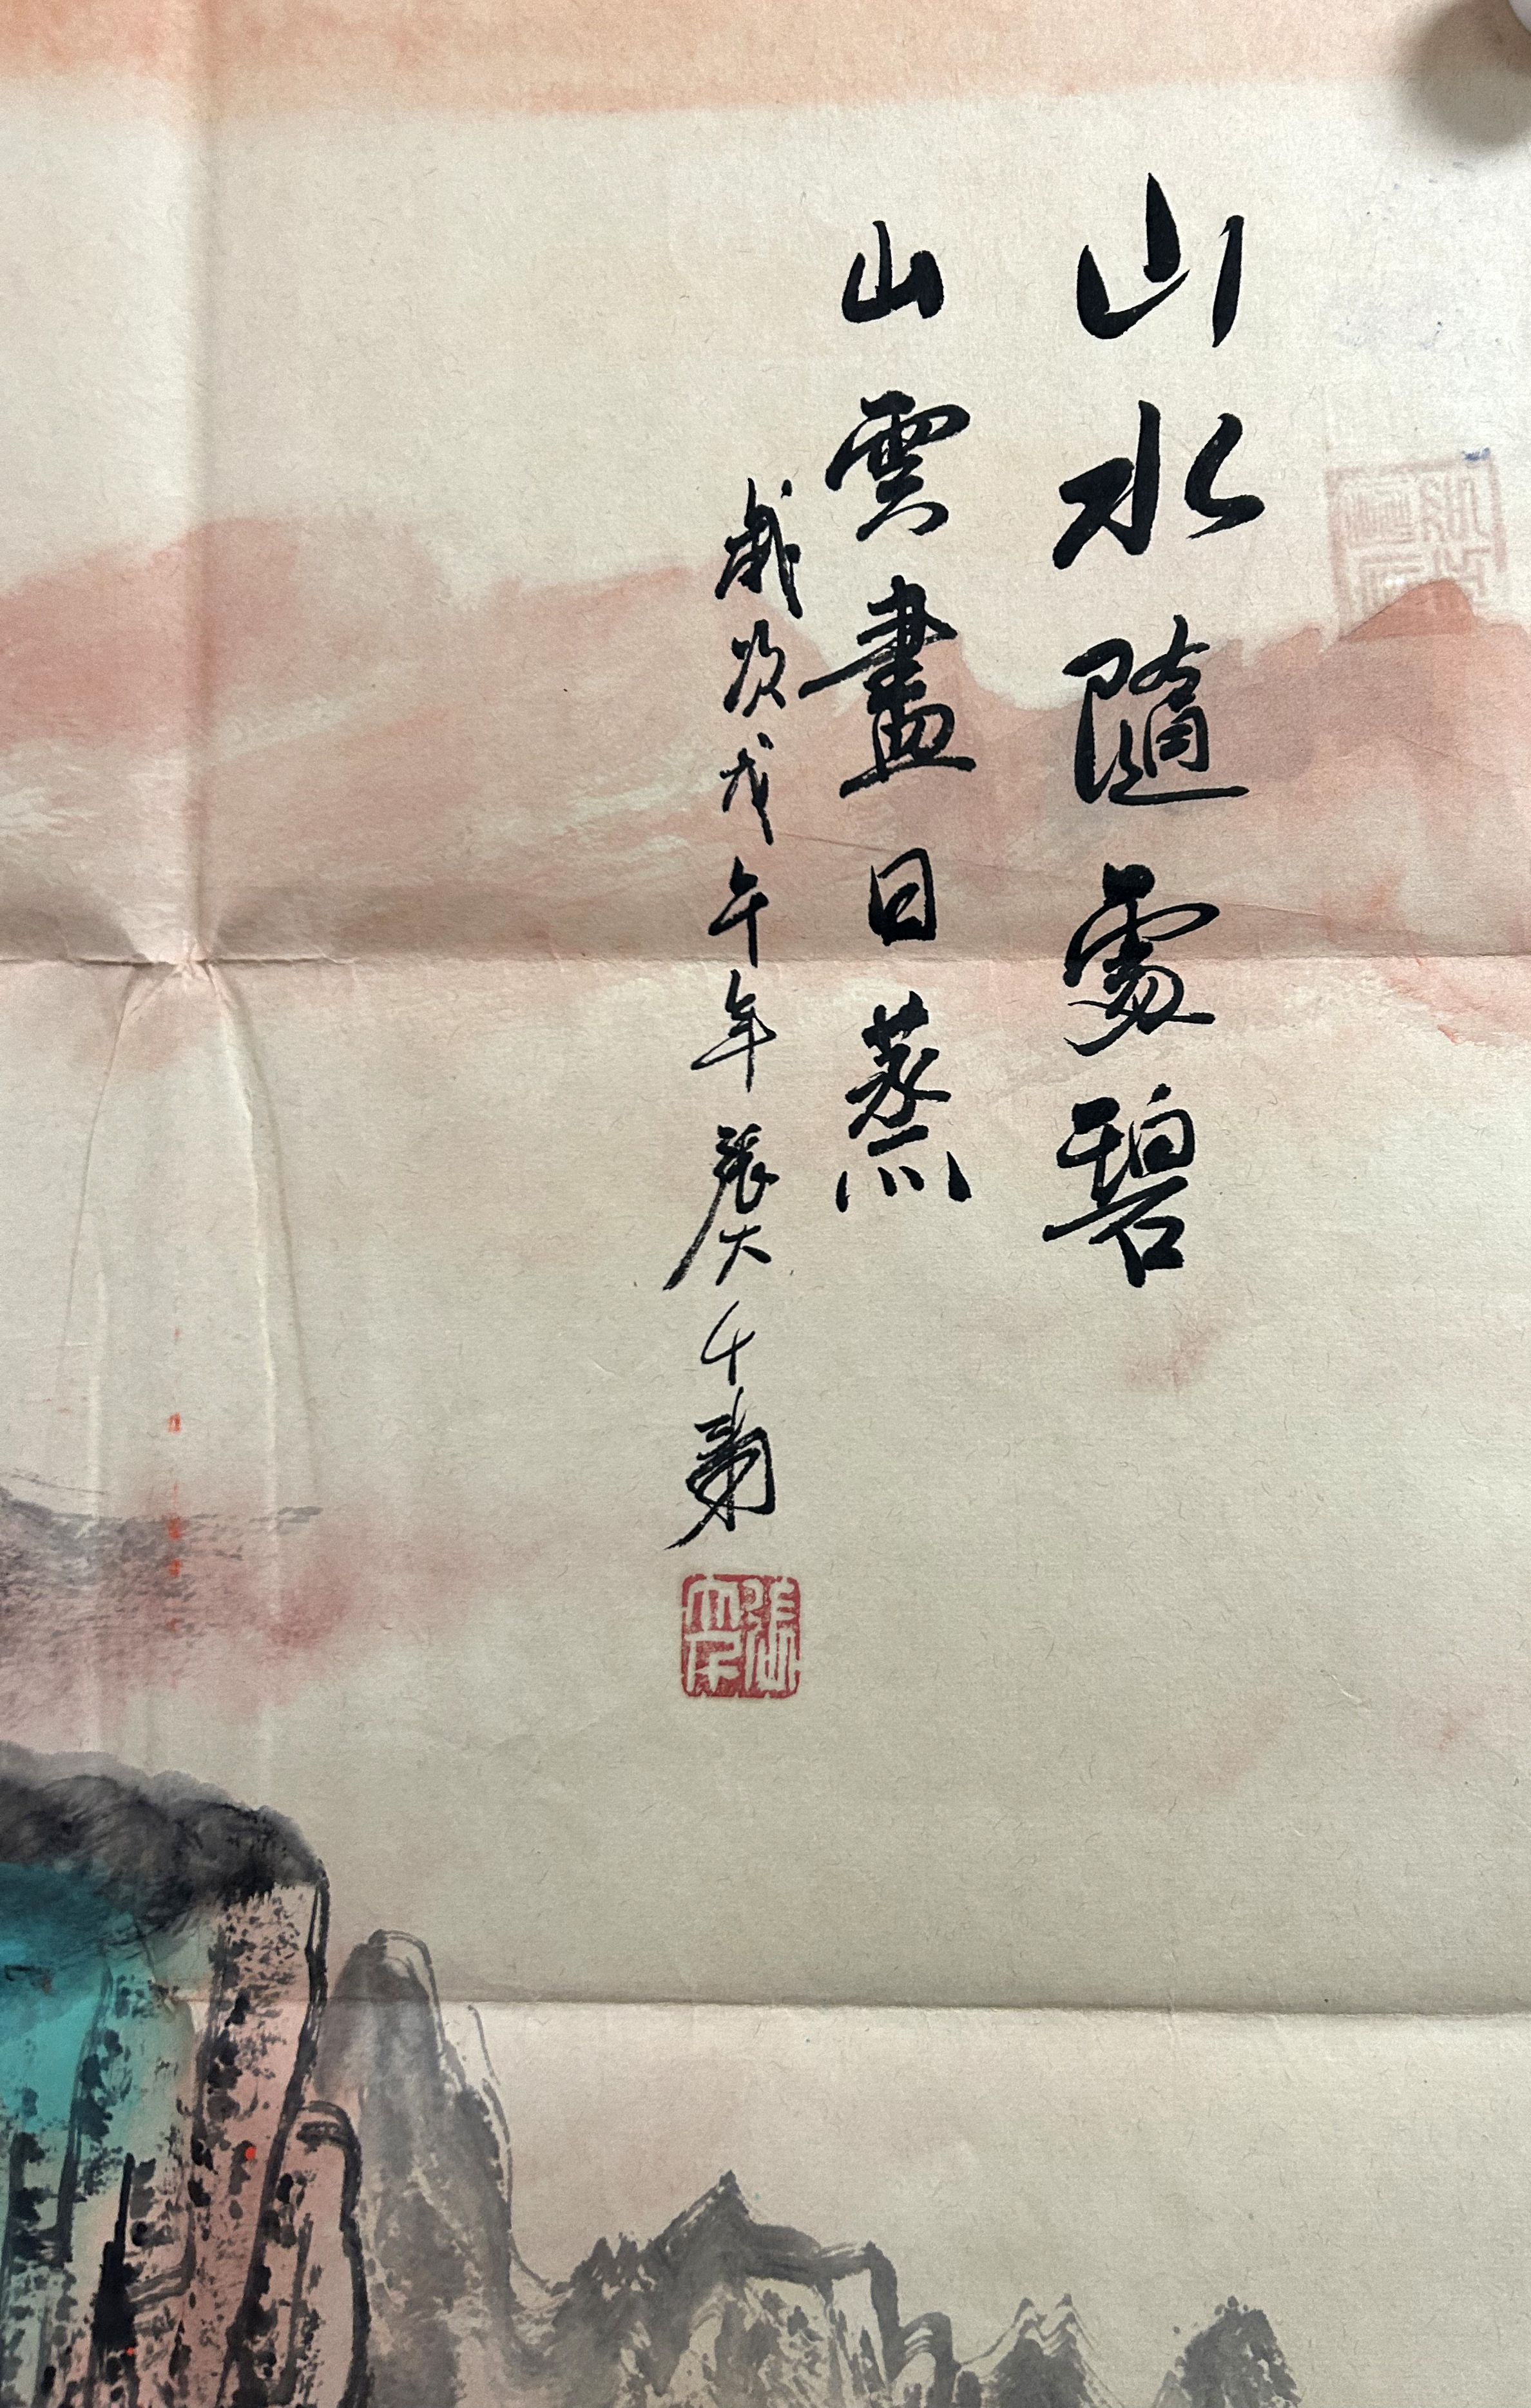 山水隨處碧
山雲盡日蒸
歲次戊午年張大千
張大千